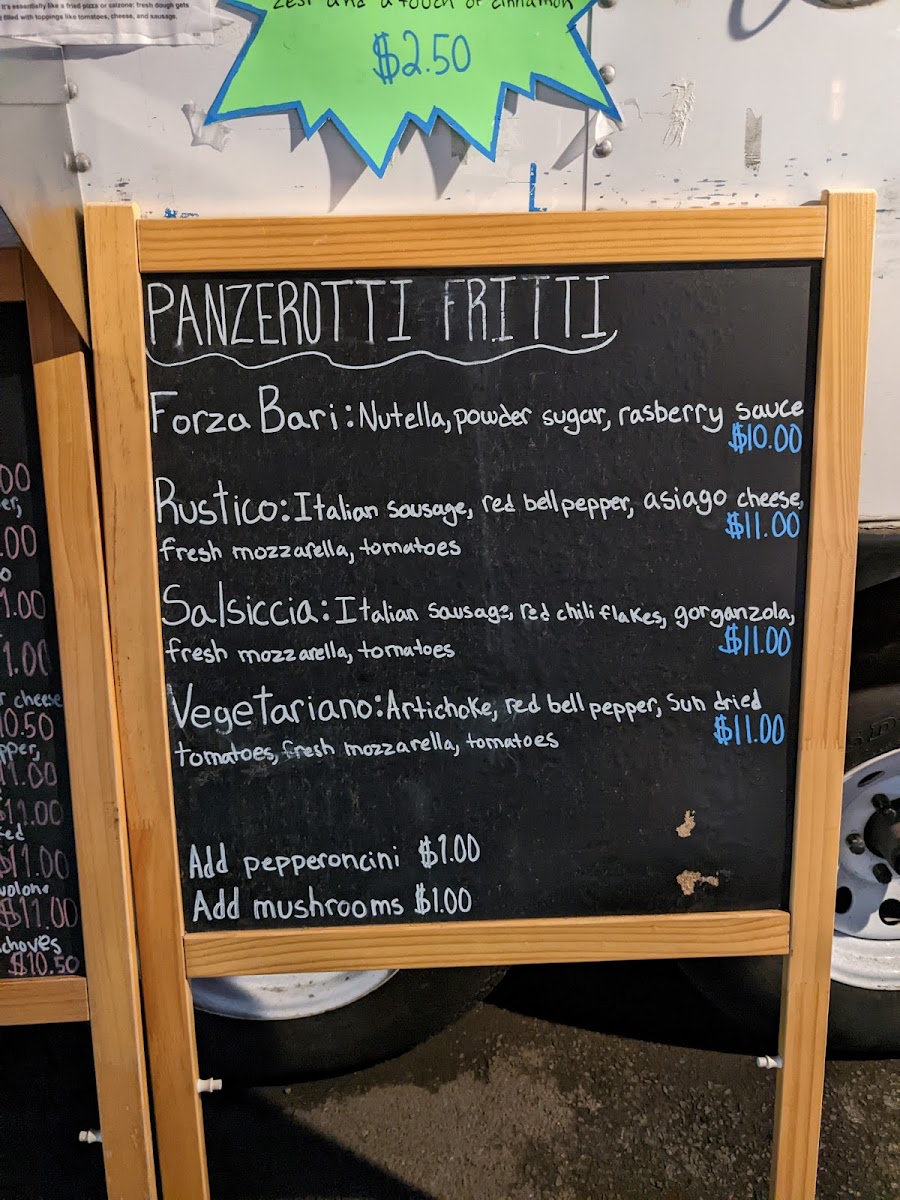 It's essentially like a fried pizza or calzone: fresh dough gets
filled with toppings like tomatoes, cheese, and sausage.
zest and a touch of cinnamon
$2.50
PANZEROTTI FRITTI
Forza Bari: Nutella, powder sugar, rasberry sauce
$10.00
Rustico: Italian sausage, red bell pepper, asiago cheese,
$11.00
fresh mozzarella, tomatoes
Salsiccia: Italian sausage, red chili flakes, gorganzola,
$11.00
fresh mozzarella, tomatoes
Vegetariano: Artichoke, red bell pepper, sun dried
$11.00
tomatoes, fresh mozzarella, tomatoes
Add pepperoncini $1.00
Add mushrooms $1.00
.00
.00
1.00
1.00
cheese
10.50
1.00
$11.00
$11.00
$11.00
$10.50